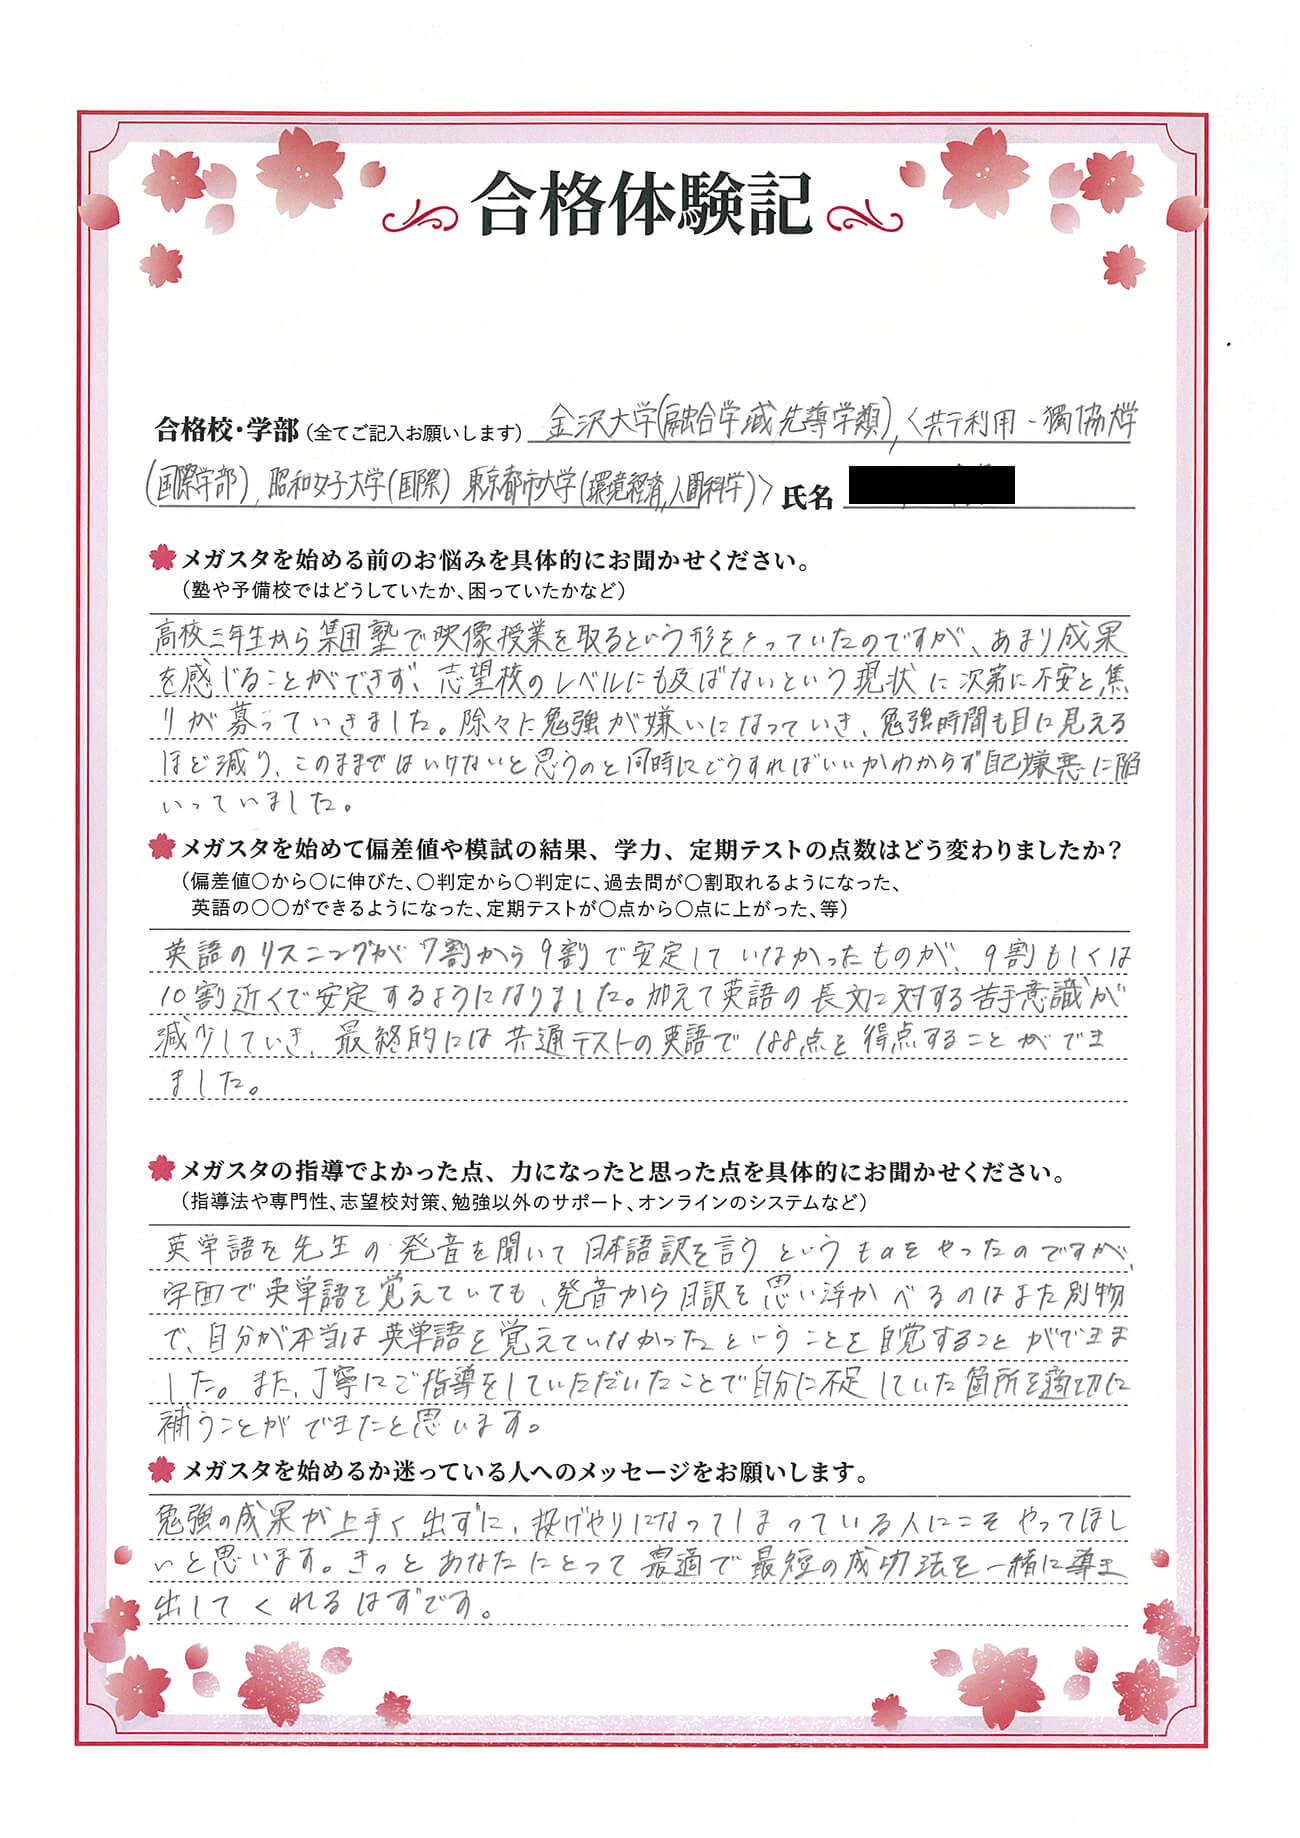 合格体験記
合格校・学部(全てご記入お願いします) 金沢大学(融合学域先導学類),〈共テ利用-獨協大学
(国際学部), 昭和女子大学(国際) 東京都市大学(環境経済,人間科学)〉 氏名
メガスタを始める前のお悩みを具体的にお聞かせください。
(塾や予備校ではどうしていたか、困っていたかなど)
高校三年生から集団塾で映像授業を取るという形をとっていたのですが、あまり成果
を感じることができず、志望校のレベルにも及ばないという現状に次第に不安と焦
りが募っていきました。除々に勉強が嫌いになっていき、勉強時間も目に見える
ほど減り、このままではいけないと思うのと同時にどうすればいいかわからず自己嫌悪に陥
いっていました。
メガスタを始めて偏差値や模試の結果、学力、定期テストの点数はどう変わりましたか?
(偏差値○から○に伸びた、○判定から○判定に、過去問が○割取れるようになった、
英語の○○ができるようになった、定期テストが○点から○点に上がった、等)
英語のリスニングが7割から9割で安定していなかったものが、9割もしくは
10割近くで安定するようになりました。加えて英語の長文に対する苦手意識が
減少していき、最終的には共通テストの英語で188点を得点することができま
ました。
メガスタの指導でよかった点、力になったと思った点を具体的にお聞かせください。
(指導法や専門性、志望校対策、勉強以外のサポート、オンラインのシステムなど)
英単語を先生の発音を聞いて日本語訳を言うというものをやったのですが、
字面で英単語を覚えていても、発音から日訳を思い浮かべるのはまた別物
で、自分が本当は英単語を覚えていなかったということを自覚することができま
した。また、丁寧にご指導をしていただいたことで自分に不足していた箇所を適切に
補うことができたと思います。
メガスタを始めるか迷っている人へのメッセージをお願いします。
勉強の成果が上手く出ずに、投げやりになってしまっている人にこそやってほし
いと思います。きっとあなたにとって最適で最短の成功法を一緒に導き
出してくれるはずです。